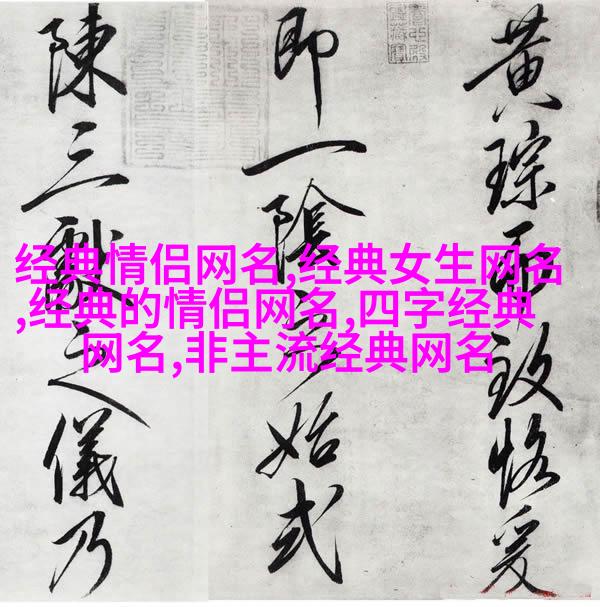 黄琮而致恪爰
即一陰之始式
陳三獻之儀乃
经典情侣网名,经典女生网名
,经典的情侣网名,四字经典
网名,非主流经典网名